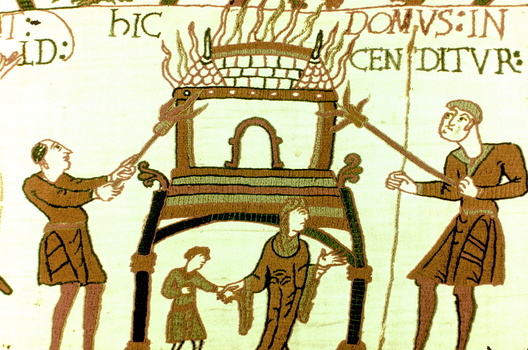 T: hIC DOMVS:IN
LD: CEN DITVR: